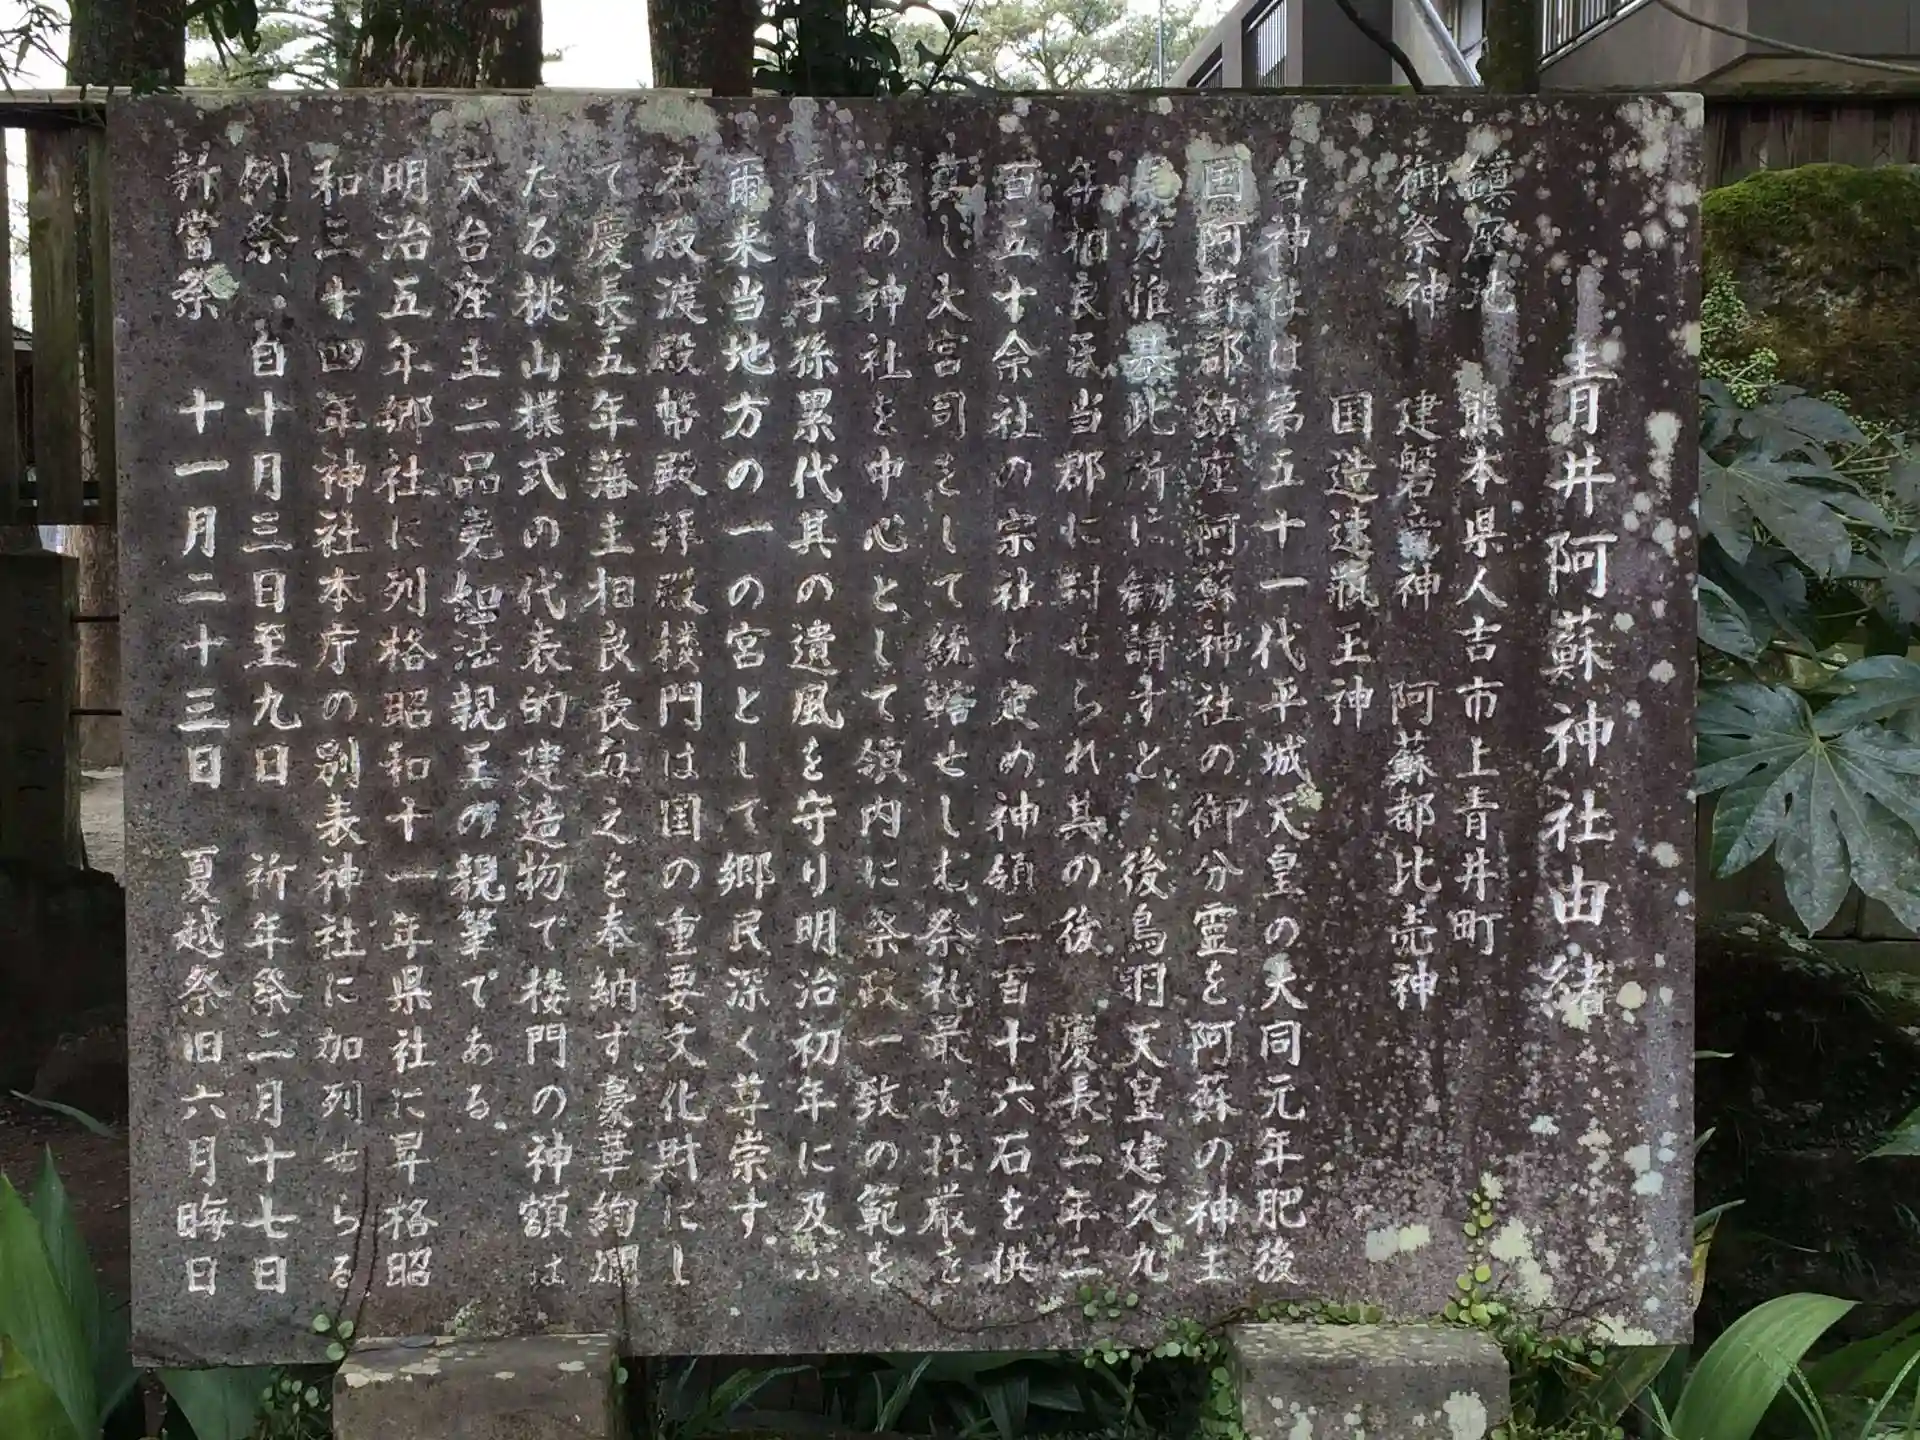 青井阿蘇神社由緒
鎮座地 熊本県人吉市上青井町
御祭神 建磐龍神 阿蘇都比売神
国造速瓶玉神
当神社は第五十一代平城天皇の大同元年肥後
国阿蘇郡鎮座阿蘇神社の御分霊を阿蘇の神主
尾方惟基此所に勧請すと、後鳥羽天皇建久九
年相良氏当郡に封せられ其の後、慶長二年二
百五十余社の宗社と定め神領二百十六石を供
し大宮司をして統轄せしむ、祭礼最も荘厳を
極め神社を中心として領内に祭政一致の範を
示し子孫累代其の遺風を守り明治初年に及ぶ
爾来当地方の一の宮として郷民深く尊崇す。
本殿渡殿幣殿拝殿楼門は国の重要文化財にし
て慶長五年藩主相良長毎之を奉納す、豪華絢爛
たる桃山様式の代表的建造物で楼門の神額は
天台座主二品尭恕法親王の親筆である。
明治五年郷社に列格昭和十一年県社に昇格昭
和三十四年神社本庁の別表神社に加列せらる
例祭、自十月三日至九日 祈年祭二月十七日
新嘗祭 十一月二十三日 夏越祭旧六月晦日